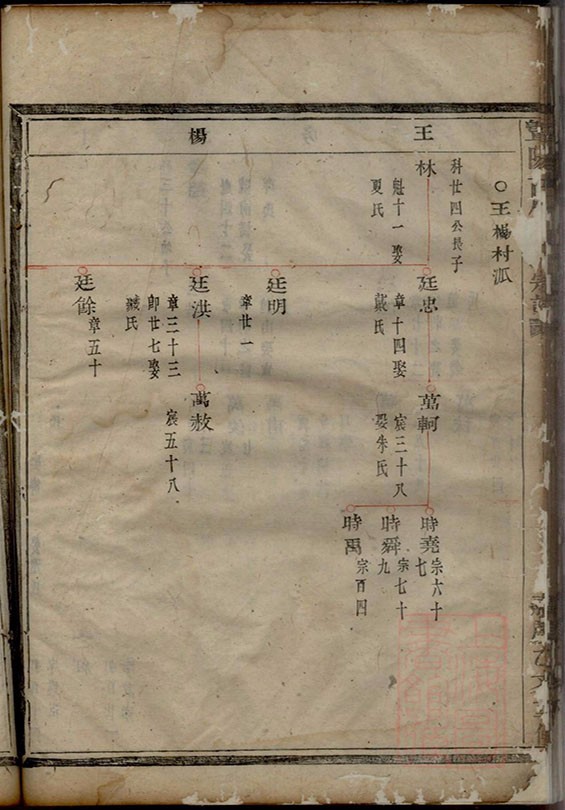 ○王楊村派
王
楊
林
科廿四公長子
魁十一娶
夏氏
廷忠
章十四娶
戴氏
萬軻
宸三十八
娶朱氏
時堯
宗六十
七
時舜
宗七十
九
時禹
宗百四
廷明
章廿一
廷洪
章三十三
即廿七娶
氏
萬赦
宸五十八
廷餘
章五十